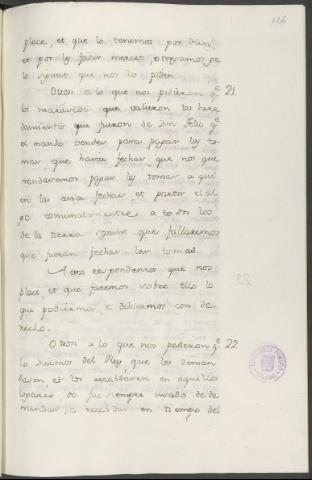 place, et que lo tenemos por bien,
et por les facer merced, otorgamosge
lo segunt que nos lo piden.
Otrosi a lo que nos pidieron q.e 21.
los maravedis que valieron las here
damientos que fueron de Don Felio q.e
el mando vender para pagar las to
mas que havia fechas, que nos que
mandaremos pagar las tomas aqui
en las avia fechas, et partir el al
go comunalmientre a todos los
de la tierra segunt que fallaremos
que fueran fechas las tomas.
A esto respondemos que nos
place, et que faremos sobre ello lo
que podiermos, e debiermos con de-
recho.
Otrosi a lo que nos pedieron q.e 22.
los diezmos del Rey que los deman
dasen, et los recabdasen en aquellos
logares, do fue siempre usado de de
mandar, e recabdar en tiempo del